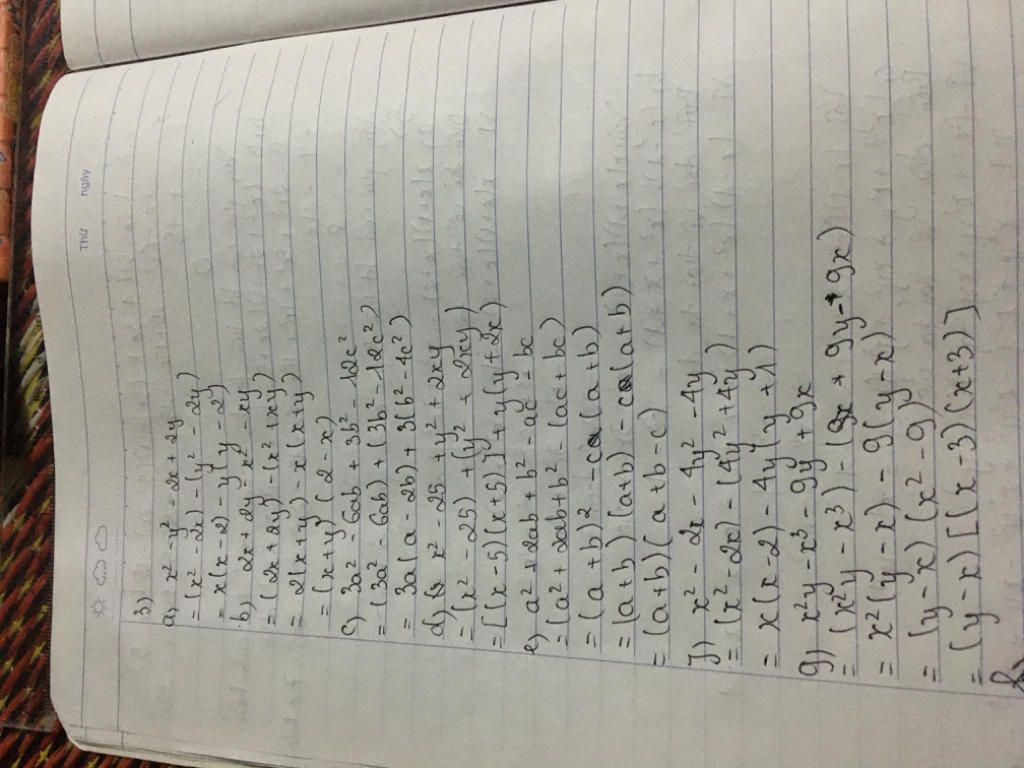 Thứ ngày
3)
a) x² - y² - 2x + 2y
= (x² - 2x) - (y² - 2y)
= x(x - 2) - y(y - 2)
b) 2x + 2y - x² - xy
= (2x + 2y) - (x² + xy)
= 2(x + y) - x(x + y)
= (x + y) (2 - x)
c) 3a² - 6ab + 3b² - 12c²
= (3a² - 6ab) + (3b² - 12c²)
= 3a(a - 2b) + 3(b² - 4c²)
d) x² - 25 + y² + 2xy
= (x² - 25) + (y² + 2xy)
= [(x - 5)(x + 5)] + y(y + 2x)
e) a² + 2ab + b² - ac - bc
= (a² + 2ab + b² - (ac + bc)
= (a + b)² - c (a + b)
= (a + b) (a + b) - c (a + b)
= (a + b) (a + b - c)
f) x² - 2x - 4y² - 4y
= (x² - 2x) - (4y² + 4y)
= x(x - 2) - 4y(y + 1)
g) x²y - x³ - 9y + 9x
= (x²y - x³) - (9y - 9x)
= x²(y - x) - 9(y - x)
= (y - x) (x² - 9)
= (y - x) [(x - 3)(x + 3)]